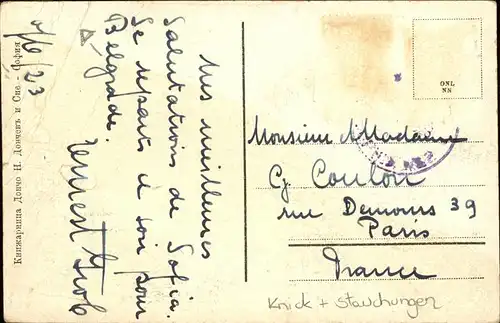 Книжарница Дончо Н. Дончевъ и Сие. - София
4/6/23
Mes meilleures
salutations de Sofia.
Je repars ce soir pour
Belgrade.
Ernest
ONL
NS
Monsieur & Madame
G. Coulon
rue Demours 39
Paris
France
Knick + Stauchungen